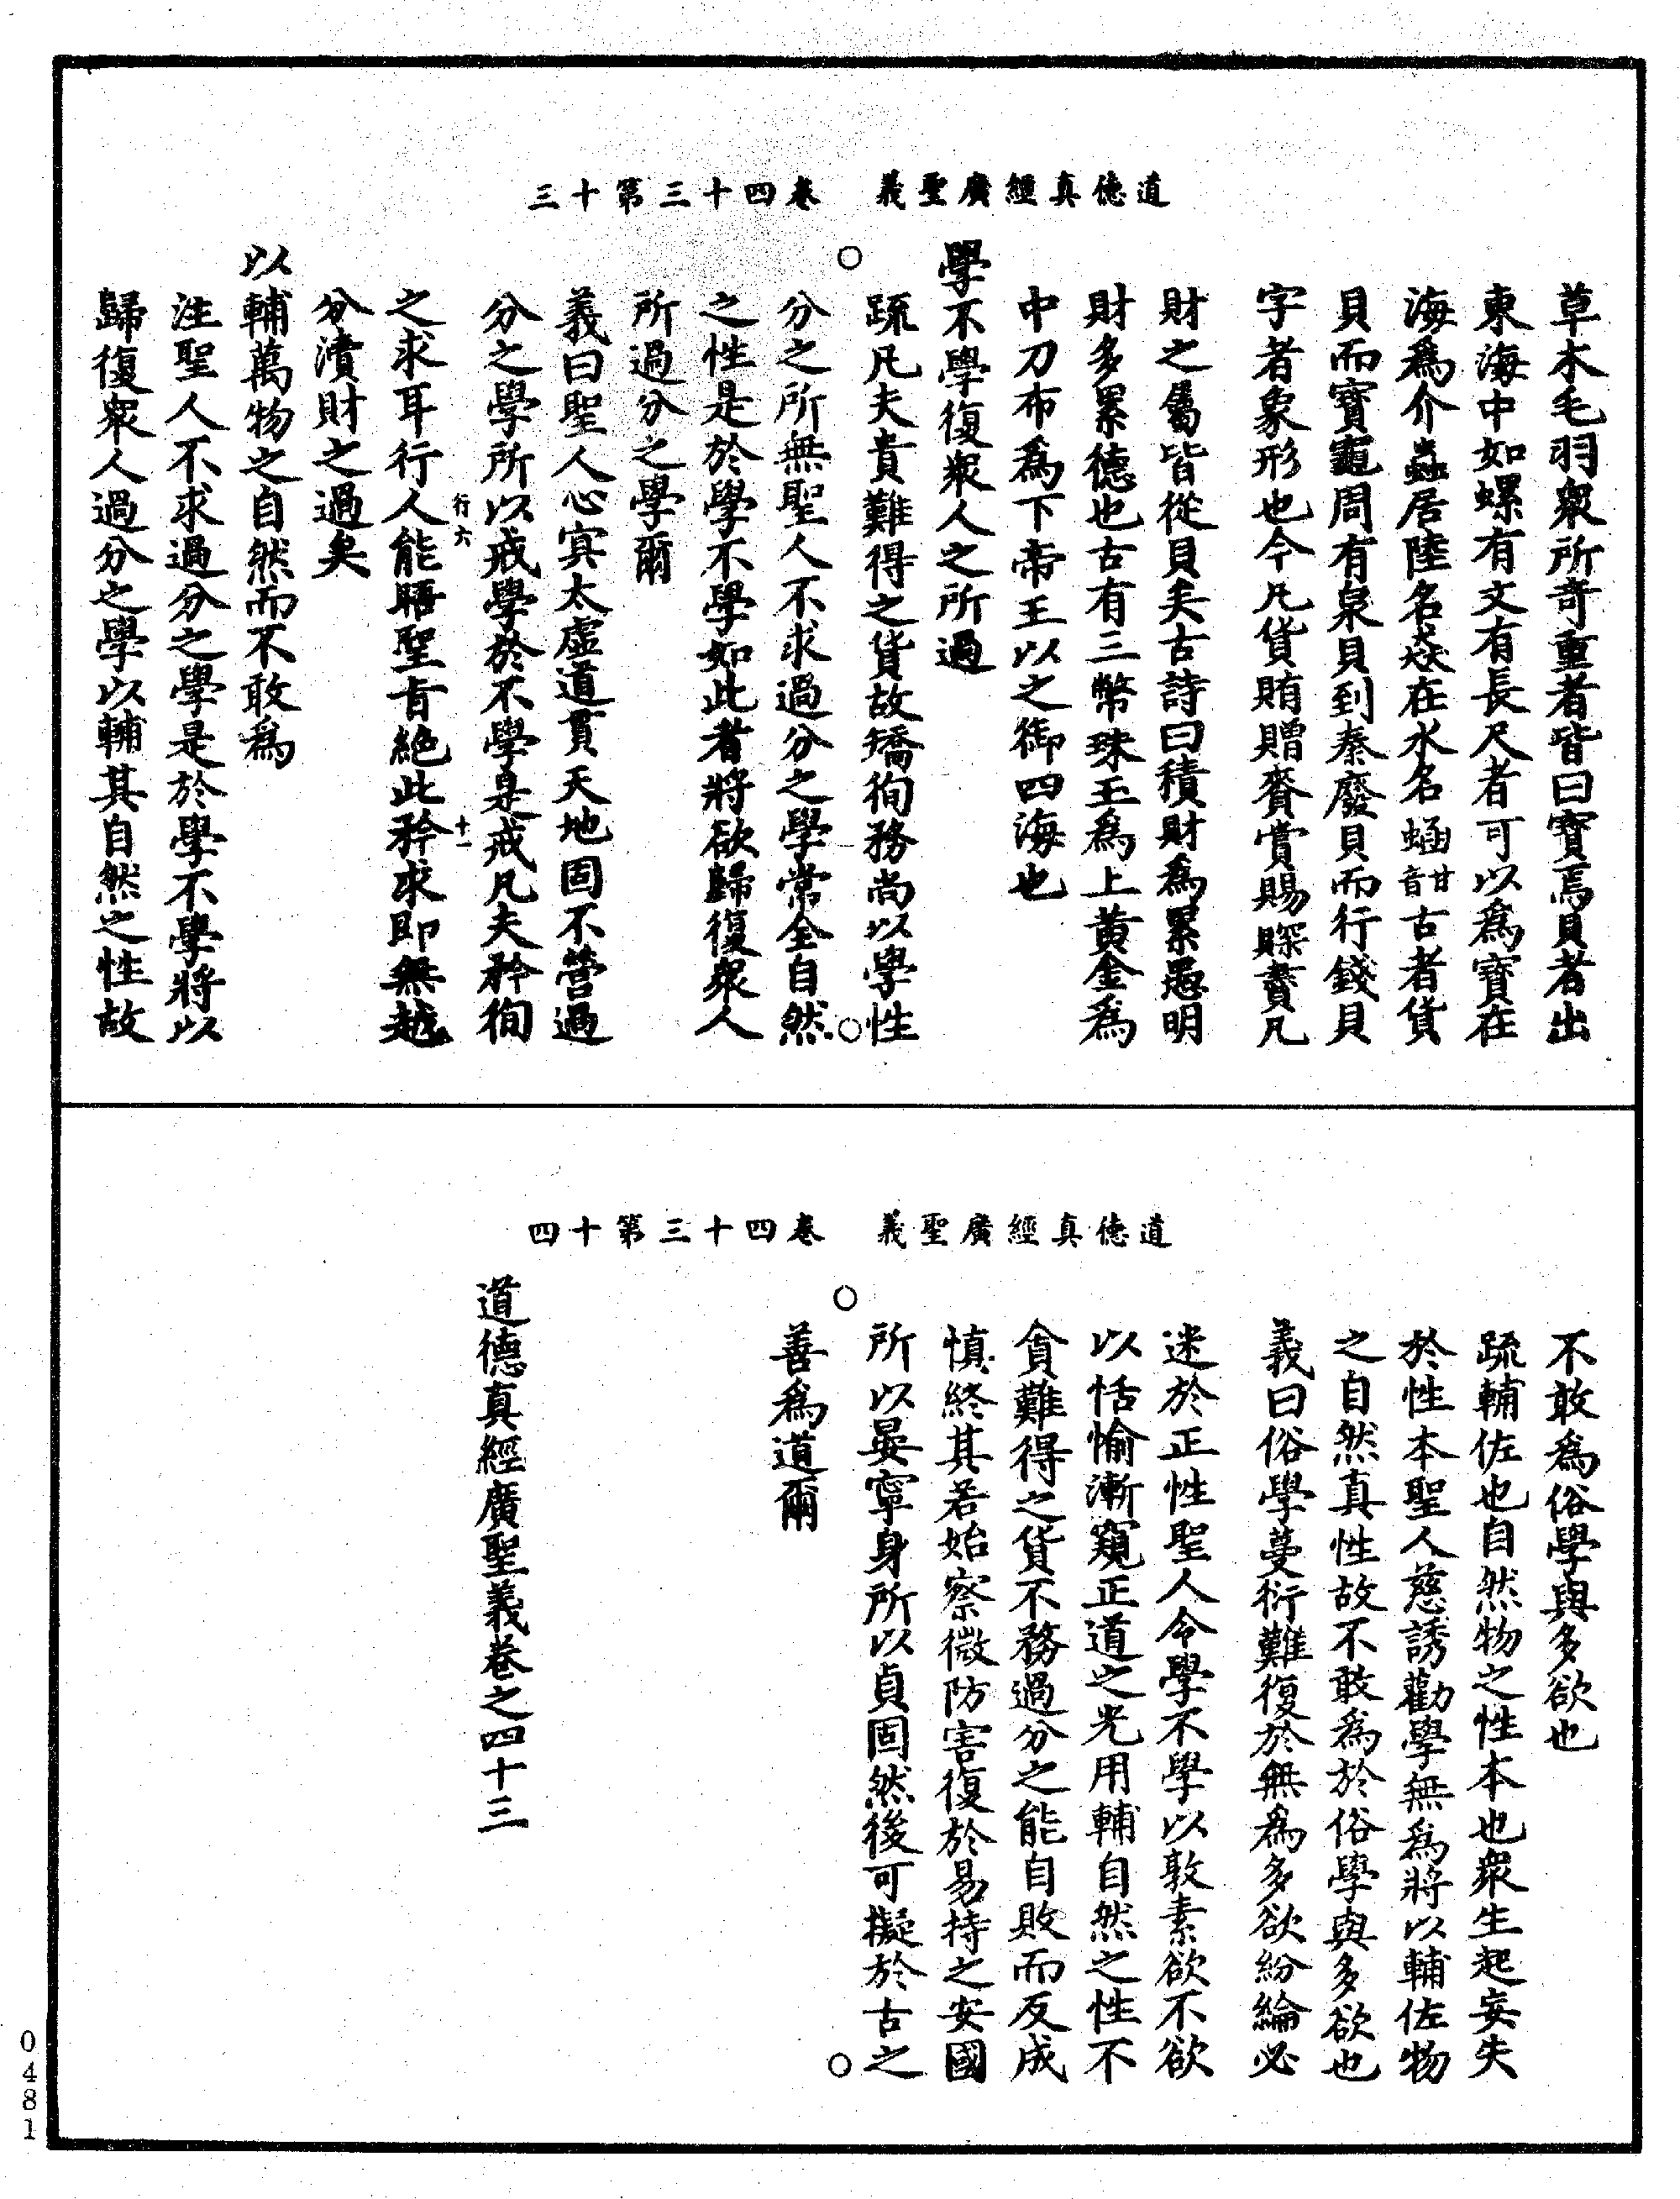 道德真經廣聖義　卷四十三第十三
草木毛羽衆所竒重者皆曰寶焉貝者出
東海中如螺有文有長尺者可以爲寶在
海爲介蟲居陸名猋在水名蜬音甘古者貨
貝而寶龜周有泉貝到秦廢貝而行錢貝
字者象形也今凡貨賄贈賚賞賜賝賮凡
財之屬皆從貝矣古詩曰積財爲累愚明
財多累德也古有三幣珠玉爲上黃金爲
中刀布爲下帝王以之御四海也
學不學復衆人之所過
疏凡夫貴難得之貨故矯徇務尚以學性
分之所無聖人不求過分之學常全自然
之性是於學不學如此者將欲歸復衆人
所過分之學爾
義曰聖人心冥太虛道貫天地固不營過
分之學所以戒學於不學是戒凡夫矜徇
行六　十一
之求耳行人能晤聖旨絶此矜求即無越
分瀆財之過矣
以輔萬物之自然而不敢爲
注聖人不求過分之學是於學不學將以
歸復衆人過分之學以輔其自然之性故
道德真經廣聖義　卷四十三第十四
不敢爲俗學與多欲也
疏輔佐也自然物之性本也衆生起妄失
於性本聖人慈誘勸學無爲將以輔佐物
之自然真性故不敢爲於俗學與多欲也
義曰俗學蔓衍難復於無爲多欲紛綸必
迷於正性聖人令學不學以敦素欲不欲
以恬愉漸窺正道之光用輔自然之性不
貪難得之貨不務過分之能自敗而反成
慎終其若始察微防害復於易持之安國
所以晏寧身所以貞固然後可擬於古之
善爲道爾
道德真經廣聖義卷之四十三
0481